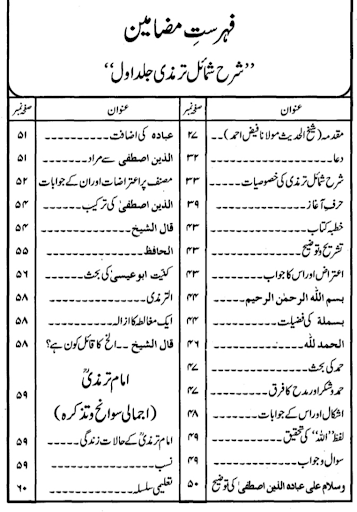 فہرستِ مضامین
’’شرح شمائل ترمذی جلد اول‘‘
عنوان صفحہ نمبر
مقدمہ (شیخ الحدیث مولانا فیض احمد) -- ۲۷
دعا ---------- ۳۲
شرح شمائل ترمذی کی خصوصیات ----- ۳۳
حرفِ آغاز ---------- ۳۹
خطبہ کتاب ---------- ۴۳
تشریح و توضیح ---------- ۴۳
اعتراض اور اس کا جواب ---------- ۴۳
بسم اللہ الرحمٰن الرحیم ---------- ۴۴
بسملة کی فضیلت ---------- ۴۴
الحمد للہ ---------- ۴۶
حمد کی بحث ---------- ۴۷
حمد و شکر اور مدح کا فرق ---------- ۴۷
اشکال اور اس کے جوابات ---------- ۴۸
لفظ ’’اللہ‘‘ کی تحقیق ---------- ۴۹
سوال و جواب ---------- ۴۹
وسلام علی عبادہ الذین اصطفیٰ کی توضیح ۵۰
عنوان صفحہ نمبر
عبادہ کی اضافت ---------- ۵۱
الذین اصطفی سے مراد ---------- ۵۱
مصنف پر اعتراضات اور ان کے جوابات ۵۲
الذین اصطفیٰ کی ترکیب ---------- ۵۴
قال الشیخ ---------- ۵۴
الحافظ ---------- ۵۵
کنیت ابو عیسیٰ کی بحث ---------- ۵۶
الترمذی ---------- ۵۸
ایک مغالطہ کا ازالہ ---------- ۵۸
قال الشیخ -- الخ کا قائل کون ہے؟ ۵۸
امام ترمذیؒ
(اجمالی سوانح و تذکرہ) ۵۹
امام ترمذیؒ کے حالات زندگی ----- ۵۹
نسب ---------- ۵۹
تعلیمی سلسلہ ---------- ۶۰